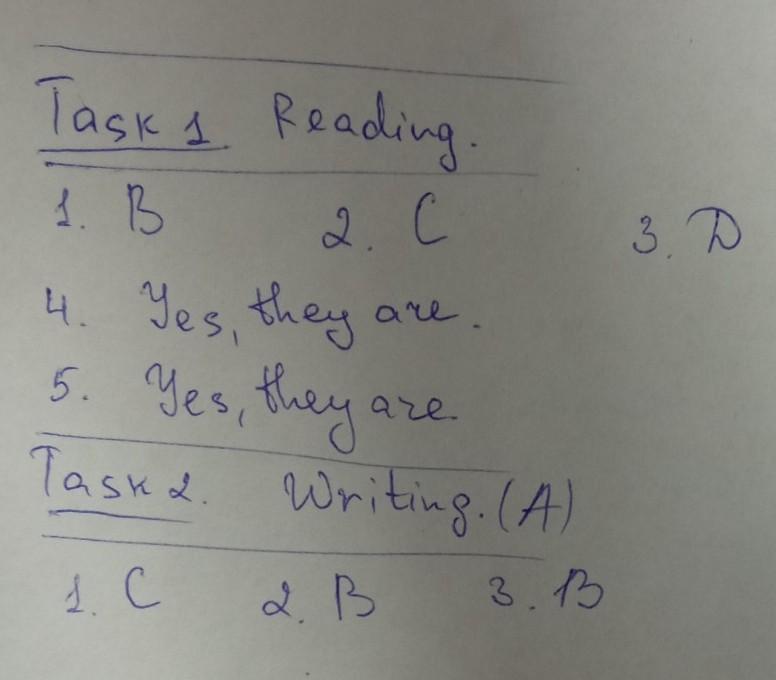 Task 1 Reading.
1. B 2. C 3. D
4. Yes, they are.
5. Yes, they are.
Task 2. Writing. (A)
1. C 2. B 3. B